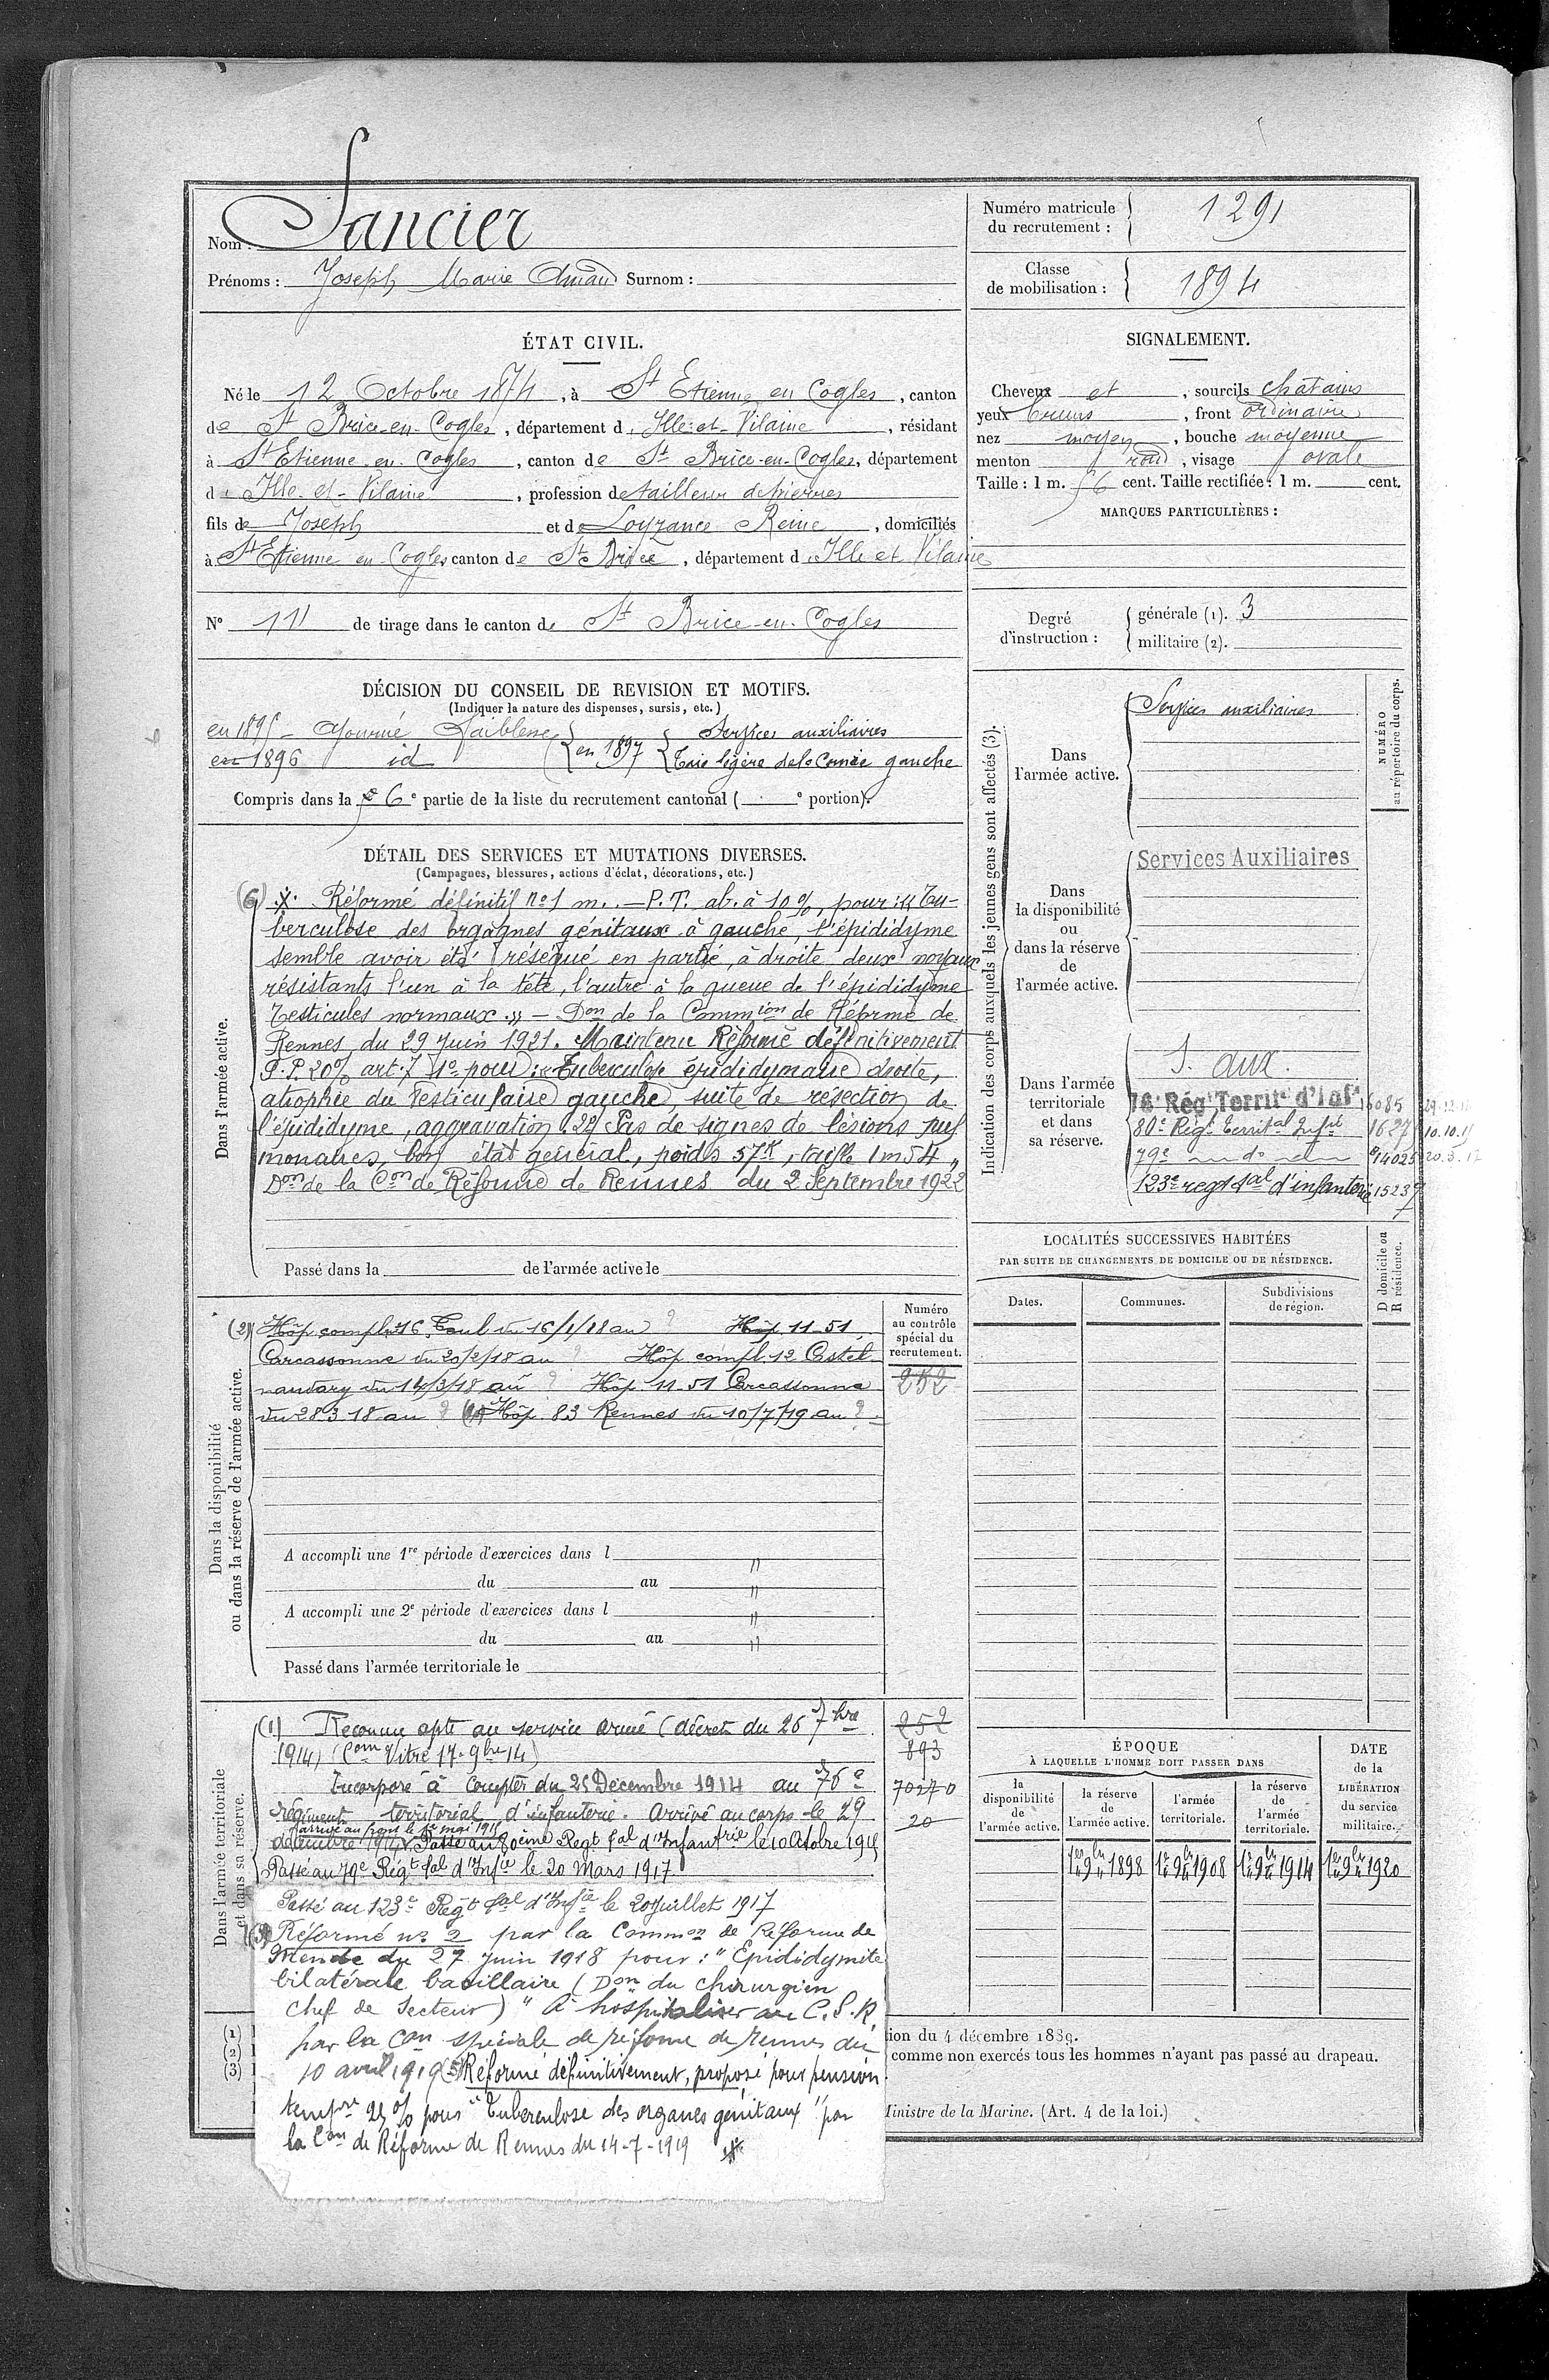 Nom : Sancier
Prénoms : Joseph Marie Amand Surnom :
Numéro matricule du recrutement : 1291
Classe de mobilisation : 1894
ÉTAT CIVIL.
Né le 12 Octobre 1874, à St Etienne en Cogles, canton
de St Brice-en-Cogles, département d'Ille-et-Vilaine, résidant
à St Etienne-en-Cogles, canton de St Brice-en-Cogles, département
d'Ille-et-Vilaine, profession de tailleur de pierres
fils de Joseph et de Loyzance Reine, domiciliés
à St Etienne en-Cogles canton de St Brice, département d'Ille et Vilaine
N° 111 de tirage dans le canton de St Brice-en-Cogles
SIGNALEMENT.
Cheveux et, sourcils chatains
yeux bruns, front ordinaire
nez moyen, bouche moyenne
menton rond, visage ovale
Taille : 1 m. 56 cent. Taille rectifiée : 1 m. cent.
MARQUES PARTICULIÈRES :
Degré d'instruction : générale (1). 3
militaire (2).
DÉCISION DU CONSEIL DE REVISION ET MOTIFS.
(Indiquer la nature des dispenses, sursis, etc.)
en 1895 - Ajourné Faiblesse
en 1896 id
en 1897 Services auxiliaires
Taie légère de la Cornée gauche
Compris dans la 6e partie de la liste du recrutement cantonal ( e portion).
DÉTAIL DES SERVICES ET MUTATIONS DIVERSES.
(Campagnes, blessures, actions d'éclat, décorations, etc.)
Dans l'armée active.
(6) Réformé définitif N°1 m.. - P.T. ab. à 10 %, pour : « Tu-
berculose des orgagnes génitaux à gauche, l'épididyme
semble avoir été réséqué en partie, à droite deux noyaux
résistants l'un à la tête, l'autre à la queue de l'épididyme
Testicules normaux. » - Don de la Commion de Réforme de
Rennes du 29 Juin 1921. Maintenu Réformé définitivement
P.P. 20% art. 7 N° pour : « Tuberculose épididymaire droite,
atrophie du Testiculaire gauche, suite de résection de
l'épididyme, aggravation 2° Pas de signes de lésions pul
monaires, bon état général, poids 57K, taille 1m54 »
Don de la Con de Réforme de Rennes du 2 Septembre 1922
Passé dans la de l'armée active le
Indication des corps auxquels les jeunes gens sont affectés (3).
NUMÉRO au répertoire du corps.
Dans l'armée active.
Services auxiliaires
Dans la disponibilité ou dans la réserve de l'armée active.
Services Auxiliaires
Dans l'armée territoriale et dans sa réserve.
S. aux.
76e Régt Territl d'Infie 16085
80e Régt Territal Infie 1627 10.10.15
79e do 14025 20.3.17
123e regt tal d'infanterie 15237
LOCALITÉS SUCCESSIVES HABITÉES
PAR SUITE DE CHANGEMENTS DE DOMICILE OU DE RÉSIDENCE.
Dates. Communes. Subdivisions de région. D domicile ou R résidence.
Dans la disponibilité ou dans la réserve de l'armée active.
Numéro au contrôle spécial du recrutement.
252
(2) Hôp compl 46 Toul du 16/1/18 au ? Hôp. 11-51
Carcassonne du 20/2/18 au ? Hôp compl. 12 Castel
naudary du 14/3/18 au ? Hôp. 11-51 Carcassonne
du 28 3-18 au ? Hôp. 83 Rennes du 10/7/19 au ?
A accompli une 1re période d'exercices dans l
du au
A accompli une 2e période d'exercices dans l
du au
Passé dans l'armée territoriale le
Dans l'armée territoriale et dans sa réserve.
(1) Reconnu apte au service armé (décret du 26 7bre
1914) (Com Vitré 17. 9bre 14)
Incorporé à compter du 25 Décembre 1914 au 76e
régiment territorial d'infanterie. Arrivé au corps le 29
arrivé au front le 1er mai 1915
décembre 1914. Passé au 80ème Regt tal d'Infantrie le 10 Octobre 1915
Passé au 79e Régt tal d'Infie le 20 Mars 1917
Passé au 123e Régt tal d'Infie le 20 Juillet 1917
(3) Réformé n° 2 par la Common de Réforme de
Mende du 27 Juin 1918 pour : "Epididymite
bilatérale bacillaire (Don du chirurgien
chef de Secteur)" à hospitaliser au C.S.R.
par la Con spéciale de réforme de Rennes du
10 avril 1919 (5) Réformé définitivement, proposé pour pension
tempre 25 % pour "Tuberculose des organes génitaux" par
la Con de Réforme de Rennes du 14-7-1919
252
893
70270
20
ÉPOQUE
À LAQUELLE L'HOMME DOIT PASSER DANS
la disponibilité de l'armée active. la réserve de l'armée active. l'armée territoriale. la réserve de l'armée territoriale.
DATE de la LIBÉRATION du service militaire.
1er 9br 1898 1er 9br 1908 1er 9br 1914 1er 9br 1920
(1)
(2)
(3)
ion du 4 décembre 1889.
comme non exercés tous les hommes n'ayant pas passé au drapeau.
Ministre de la Marine. (Art. 4 de la loi.)